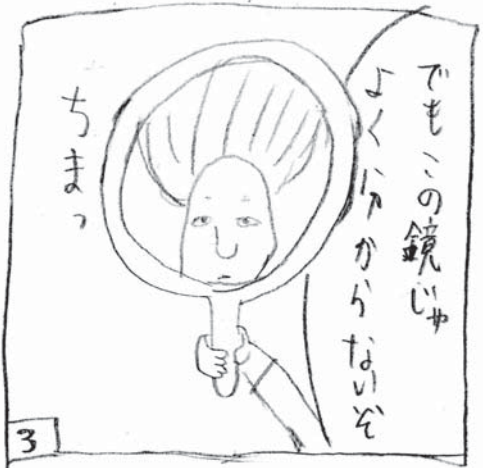 でもこの鏡じゃ
よく分からないぞ
ちまっ
3